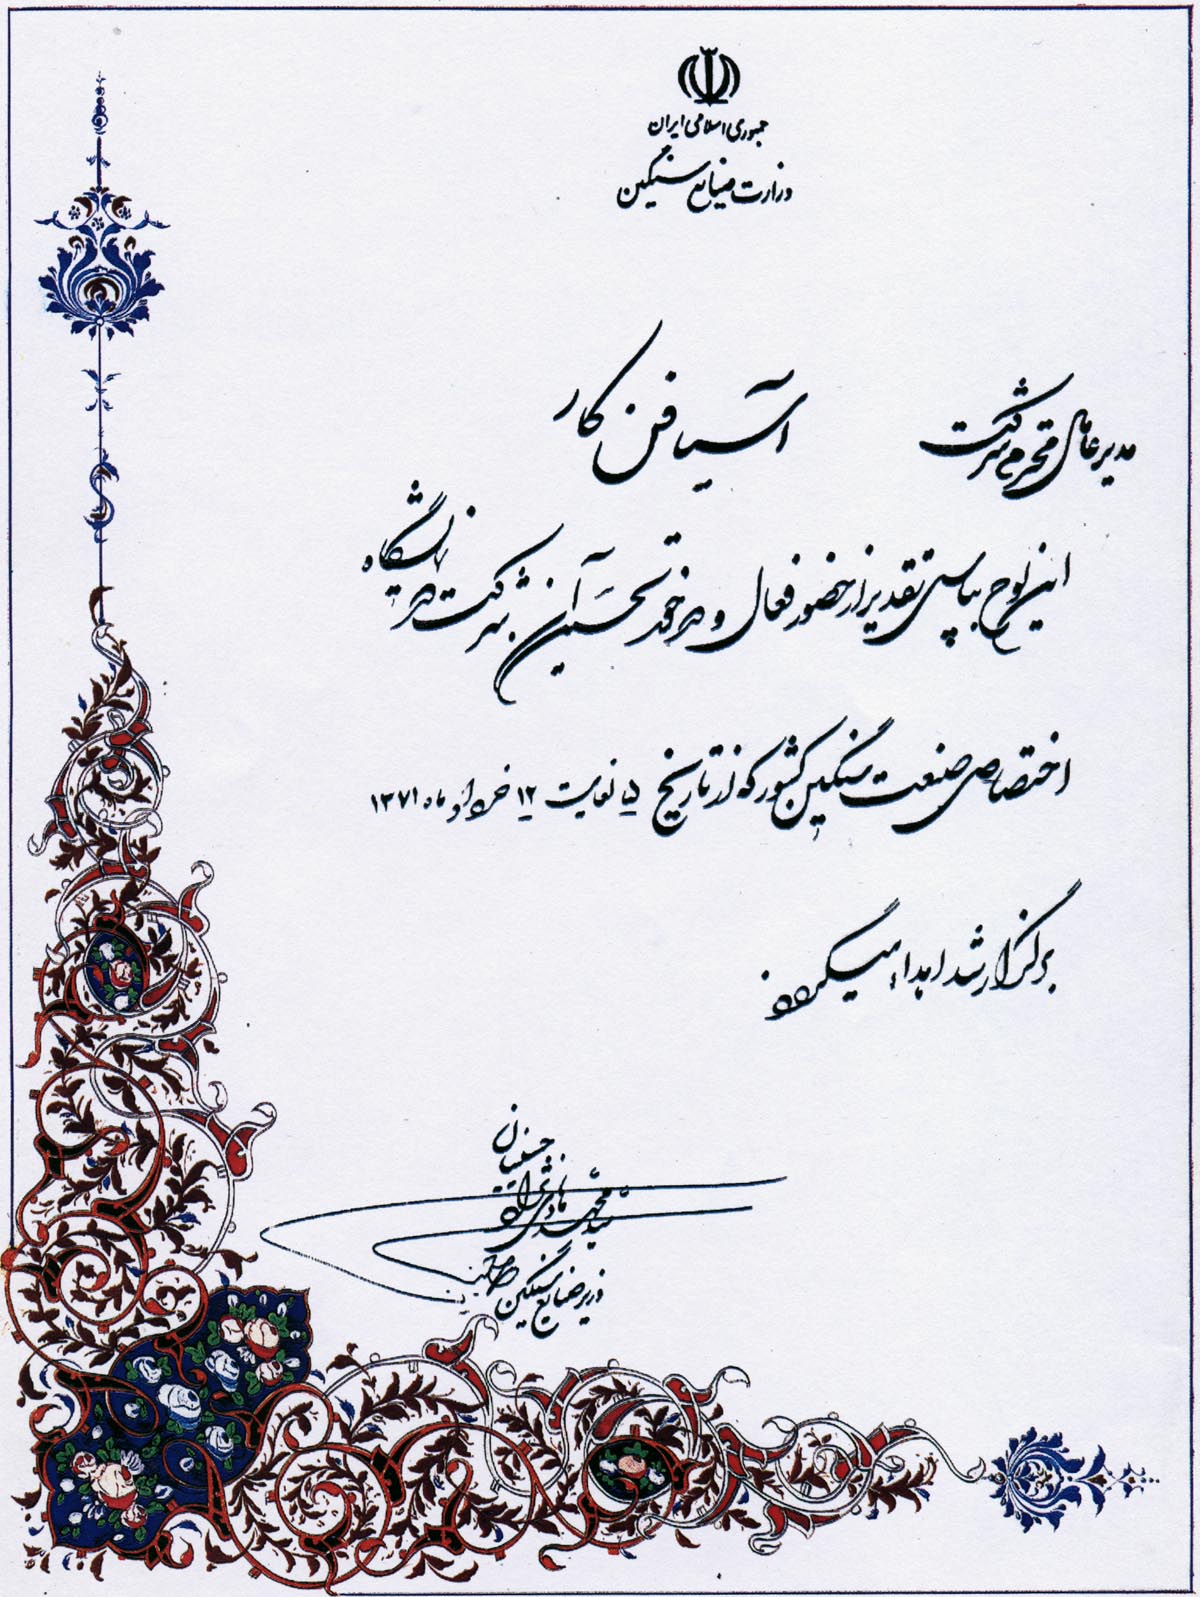 جمهوری اسلامی ایران
وزارت صنایع سنگین
مدیر عامل محترم شرکت آسیا فن کار
این لوح بپاس تقدیر از حضور فعال و در خور تحسین آن شرکت در نمایشگاه
اختصاصی صنعت سنگین کشور که از تاریخ ۵ لغایت ۱۲ خرداد ماه ۱۳۷۱
برگزار شد اهداء میگردد
سید محمد هادی نژاد حسینیان
وزیر صنایع سنگین